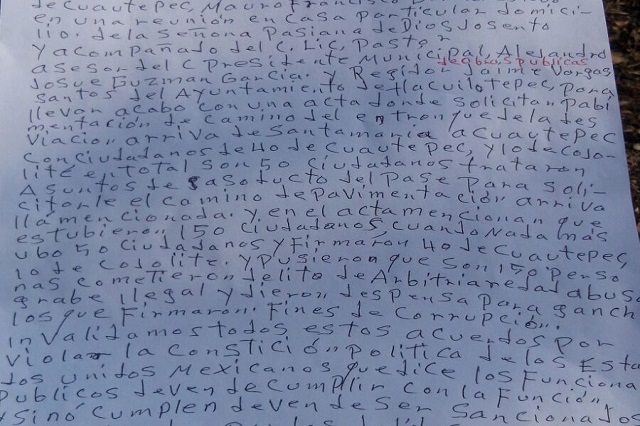 de Cuautepec, Mauro Francisco
en una reunion en casa particular domici-
lio. de la señona Pasiana de Dios Josento
y acompañado del C. Lic. Pastor
asesor del C Presidente Municipal, Alejandro
de obras publicas
Josue Guzman Garcia. y Regidor Jaime Vargas
Santos del Ayuntamiento de tlacuilotepec, para
llevar acabo con una acta donde solicitan pabi
mentación de camino del entronque de la des
viacion arriva de Santa maria a Cuautepec
con ciudadanos de 40 de Cuautepec, y 10 de coso-
lite en total son 50 ciudadanos trataron
Asuntos de gasoducto del pase para soli-
citarle el camino de pavimentación arriva
lla mencionada. y en el acta mencionan que
estubieron 150 ciudadanos, cuando nada más
ubo 50 ciudadanos y Firmaron 40 de Cuautepec,
10 de cosolite. y pusieron que son 150 perso
nas cometieron delito de Arbitriaredad abus
grabe ilegal y dieron despensa para ganch
los que Firmaron: Fines de corrupción.
invalidamos todos estos acuerdos por
violar la constición politica de los Esta
dos unidos Mexicanos que dice los Funciona
Publicos deven de cumplir con la Función,
y Sino cumplen deven de ser sancionados